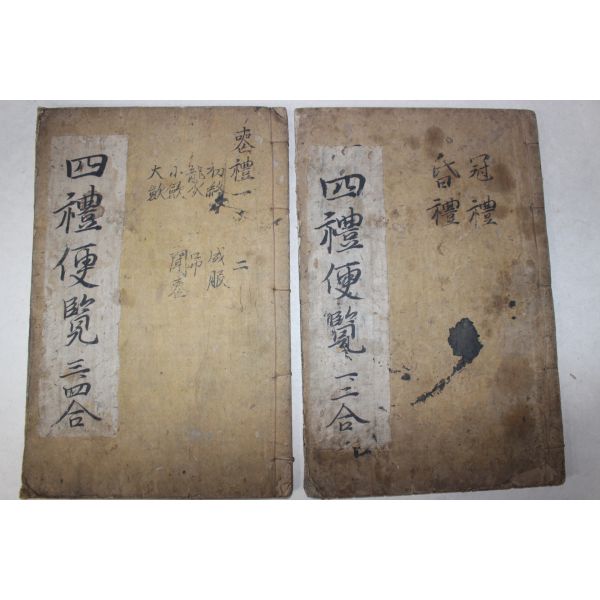 冠禮
昏禮
四禮便覽 一二合
喪禮一 二
初終 成服
襲 吊
小歛 聞喪
大歛
四禮便覧 三四合